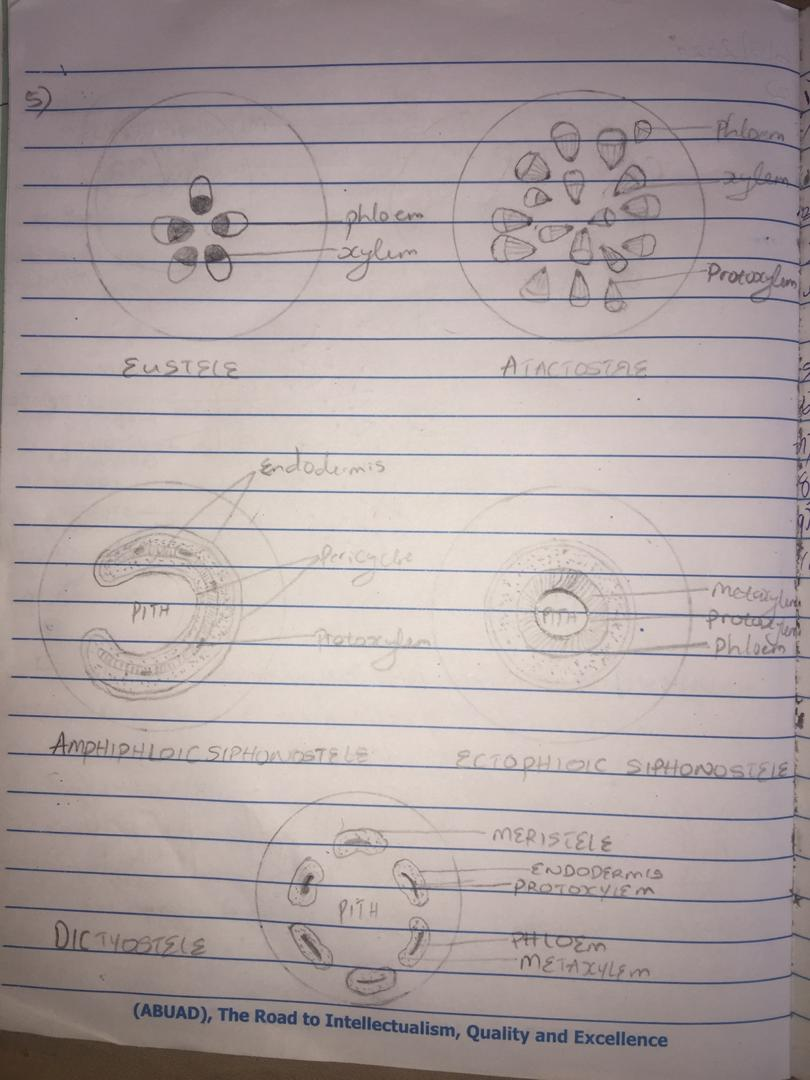 5)
phloem
xylem
EUSTELE
Phloem
xylem
Protoxylem
ATACTOSTELE
Endodermis
Pericycle
Protoxylem
PITH
AMPHIPHLOIC SIPHONOSTELE
Metaxylem
protoxylem
phloem
PITH
ECTOPHLOIC SIPHONOSTELE
MERISTELE
ENDODERMIS
PROTOXYLEM
PITH
PHLOEM
METAXYLEM
DICTYOSTELE
(ABUAD), The Road to Intellectualism, Quality and Excellence